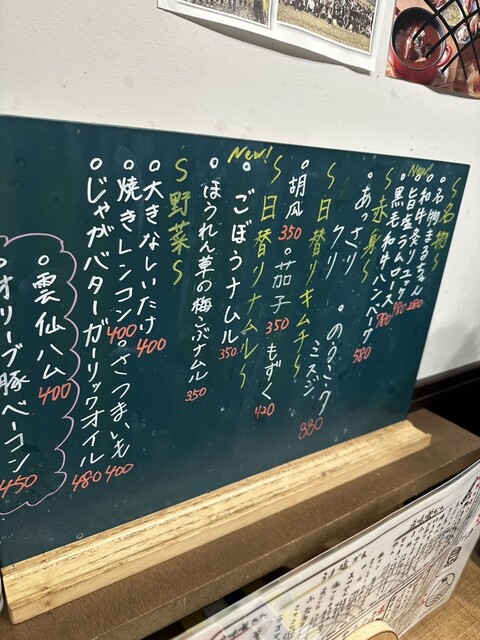 〜名物〜
○名物まるちゃん 280
New!
○和牛炙りユッケ 980
○旨塩ラムロース 780
○黒毛和牛ハンバーグ 580
〜赤身〜
○あっさり クリ
○のうこう ミスジ 880
〜日替りキムチ〜
○胡瓜 350 ○茄子 350 もずく 420
〜日替りナムル〜
New!
○ごぼうナムル 350
○ほうれん草の梅こぶナムル 350
〜野菜〜
○大きなしいたけ 400
○焼きレンコン 400 ○さつまいも 400
○じゃがバターガーリックオイル 480
○雲仙ハム 400
○オリーブ豚ベーコン 450